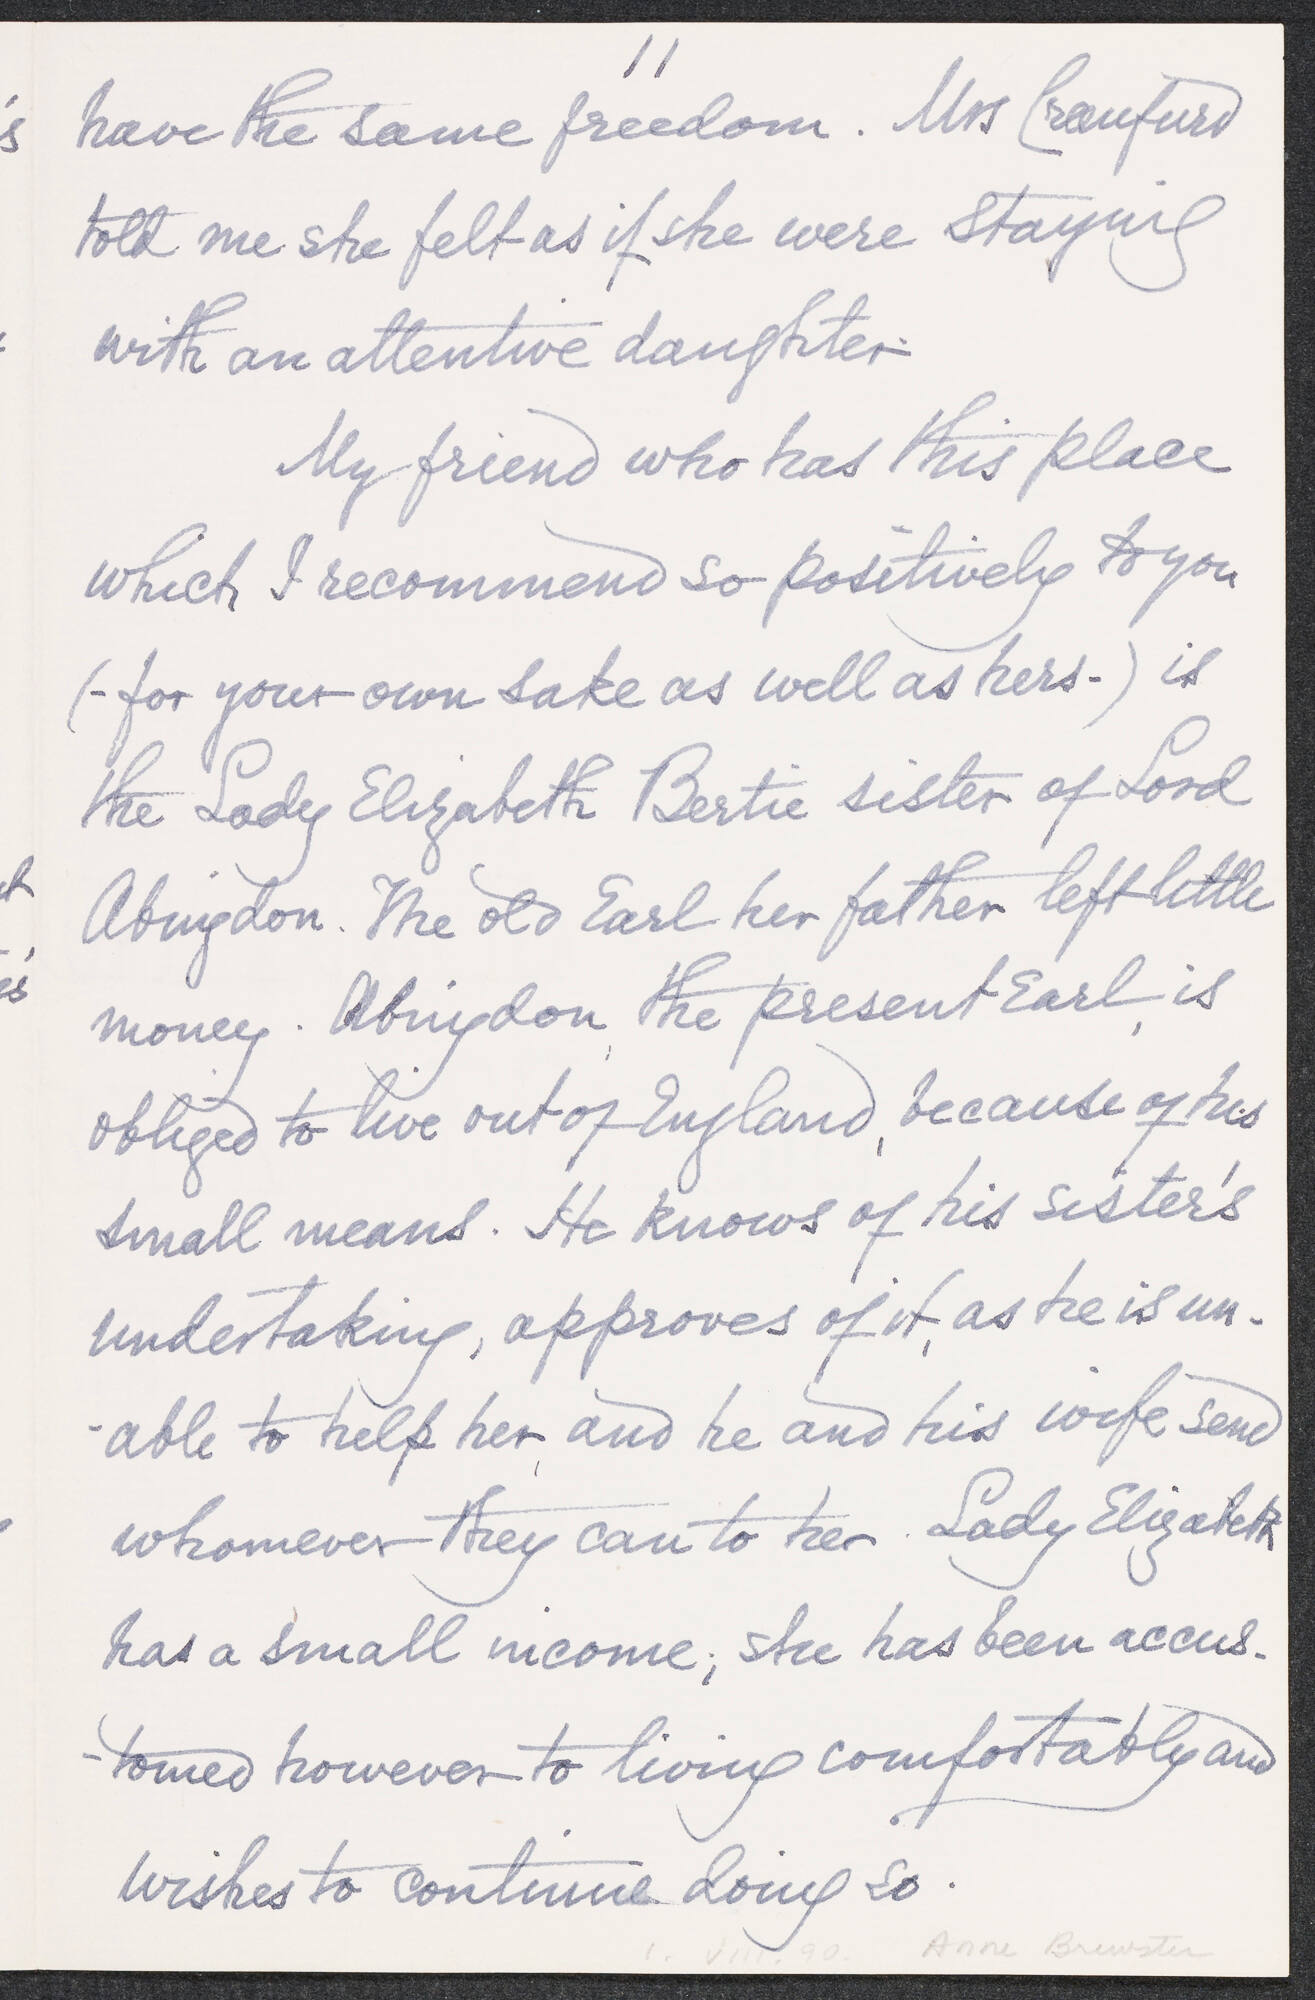 11
have the same freedom. Mrs Craufurd
told me she felt as if she were staying
with an attentive daughter.
My friend who has this place
which I recommend so positively to you
(- for your own sake as well as hers -) is
the Lady Elizabeth Bertie sister of Lord
Abingdon. The old Earl her father left little
money. Abingdon, the present Earl, is
obliged to live out of England, because of his
small means. He knows of his sister's
undertaking, approves of it, as he is un-
-able to help her, and he and his wife send
whomever they can to her. Lady Elizabeth
has a small income; she has been accus-
-tomed however to living comfortably and
wishes to continue doing so.
1. VIII. 90. Anne Brewster